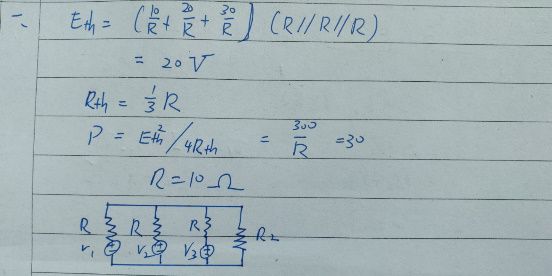 一、 Eth = (10/R + 20/R + 30/R) (R//R//R)
= 20V
Rth = 1/3 R
P = Eth²/4Rth = 300/R = 30
R = 10 Ω
R R R R2
V1 V2 V3